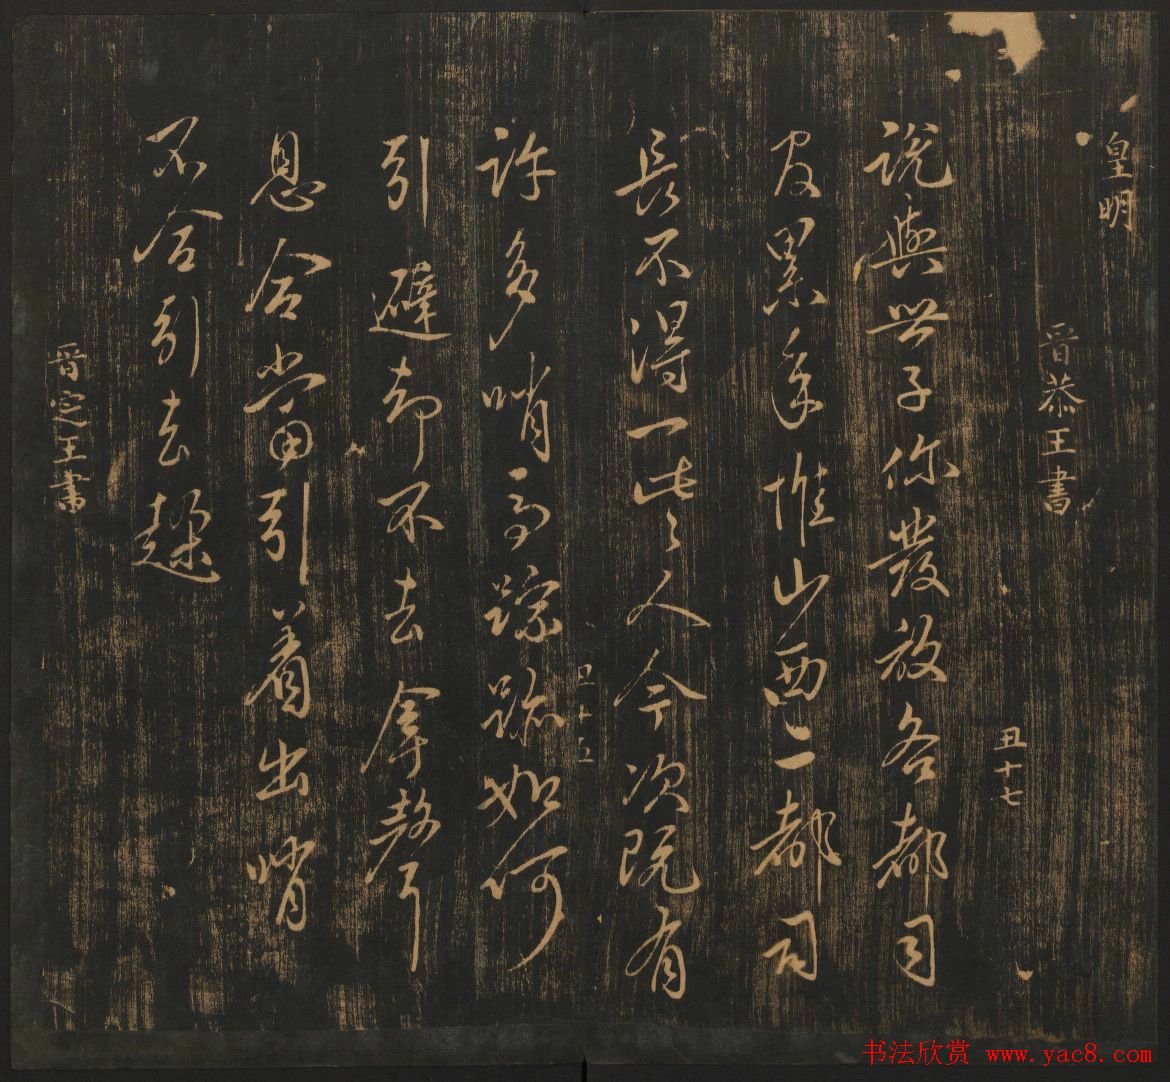 皇明
晉恭王書
丑十七
說與世子你發放各都司
官累年惟山西二都司
長不得一些人今次既有
丑十五
許多哨馬踪跡如何
引避却不去拿聲
息合當引着出哨
不合引去趓
晉定王書
书法欣赏 www.yac8.com